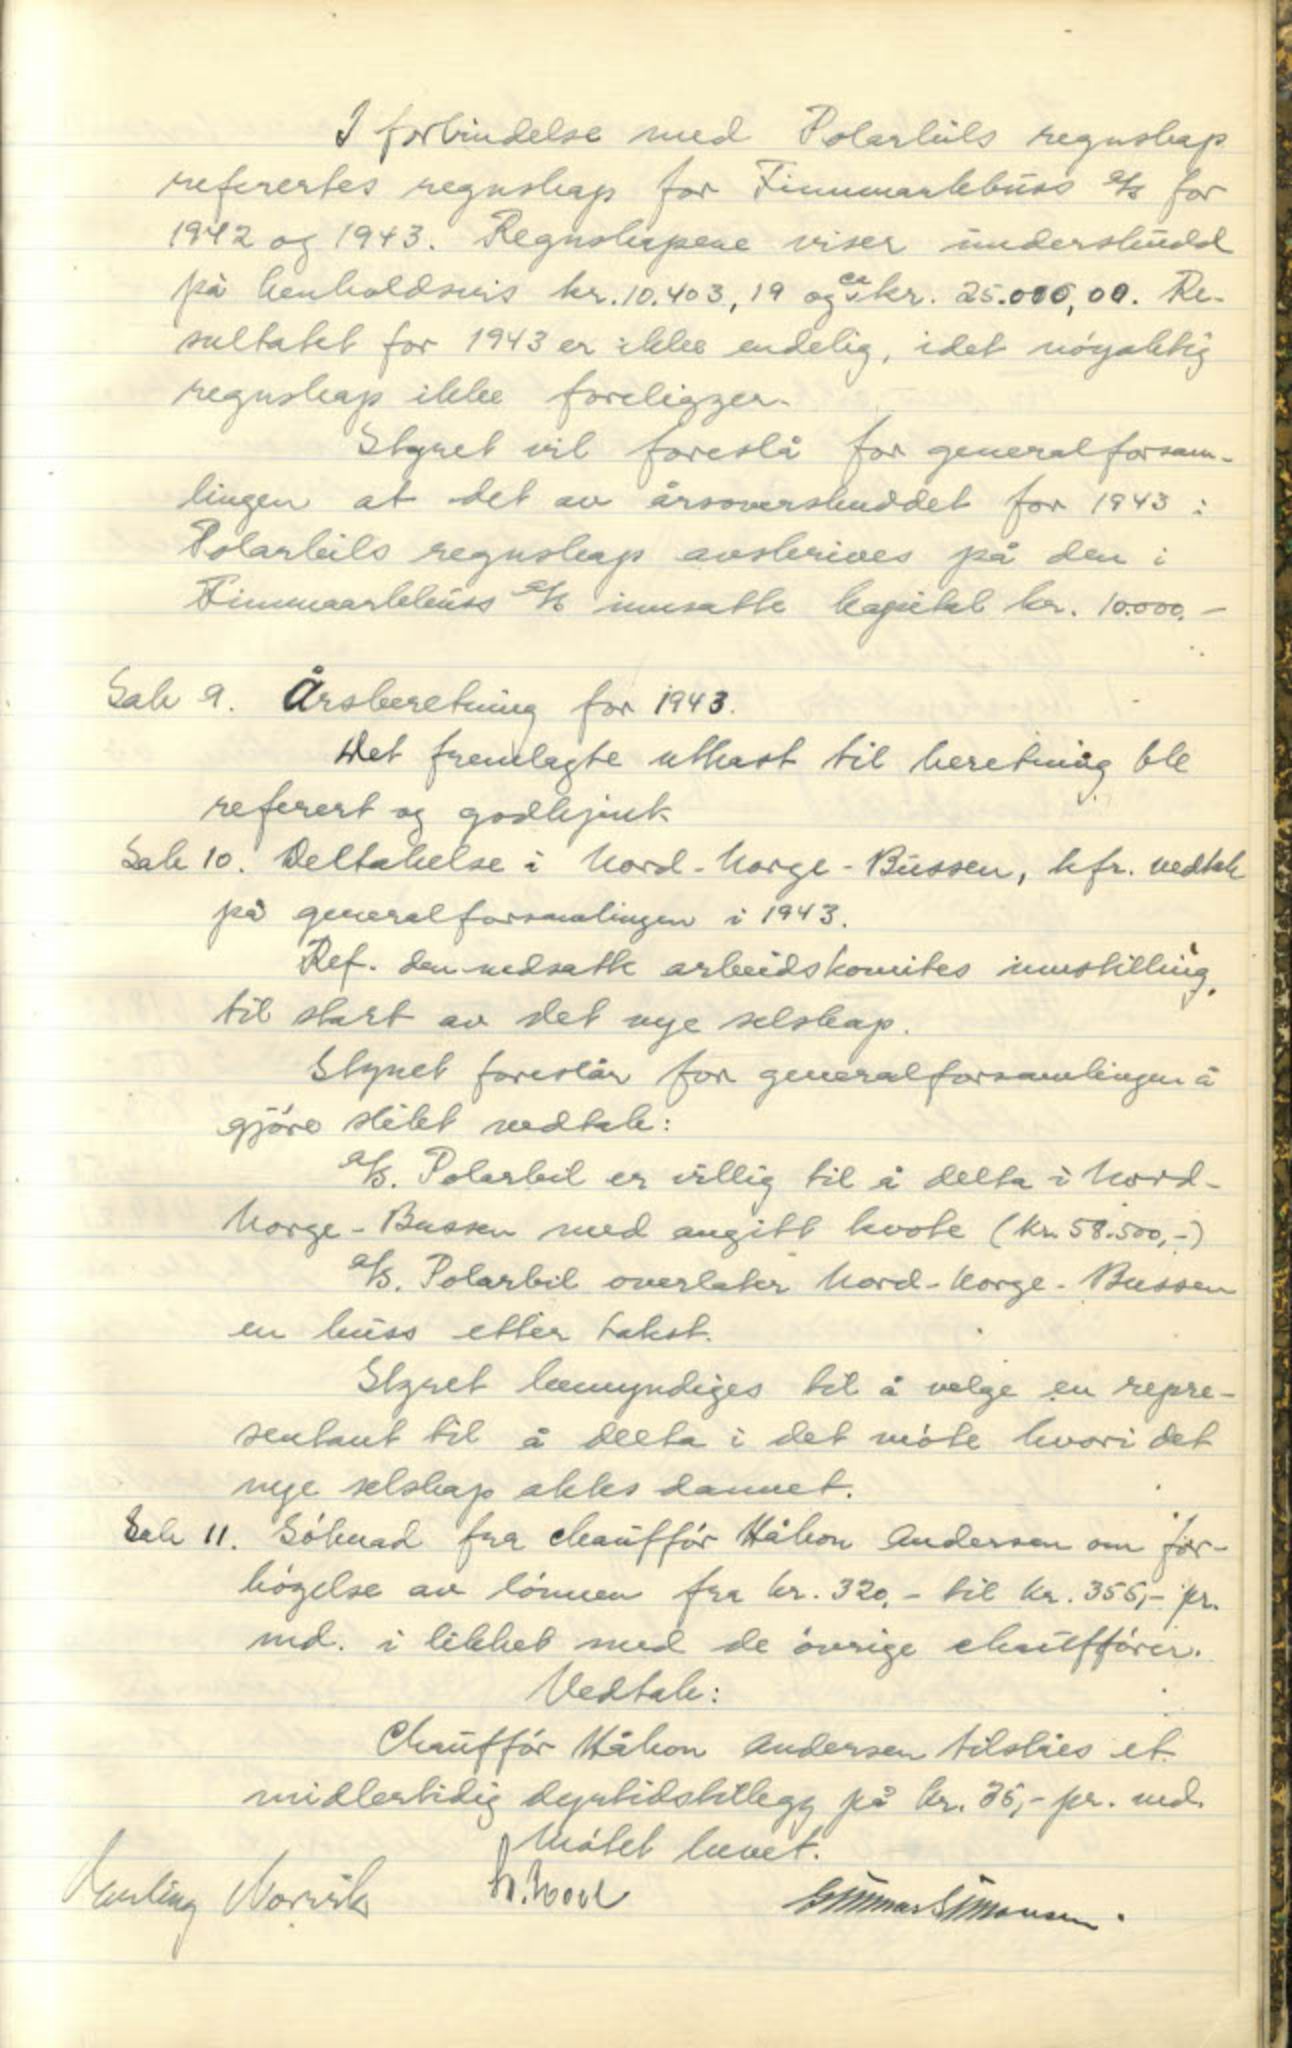 I forbindelse med Polarbils regnskap
referertes regnskap for Finnmarkbuss a/s for
1942 og 1943. Regnskapene viser underskudd
på henholdsvis kr. 10.403,19 og ca kr. 25.000,00. Re-
sultatet for 1943 er ikke endelig, idet nöyaktig
regnskap ikke foreligger.
Styret vil foreslå for generalforsam-
lingen at det av årsoverskuddet for 1943 i
Polarbils regnskap avskrives på den i
Finnmarkbuss a/s innsatte kapital kr. 10.000.-
Sak 9. Årsberetning for 1943.
Det fremlagte utkast til beretning ble
referert og godkjent.
Sak 10. Deltakelse i Nord-Norge-Bussen, kfr. vedtak
på generalforsamlingen i 1943.
Ref. den nedsatte arbeidskomites innstilling,
til start av det nye selskap.
Styret foreslår for generalforsamlingen å
gjöre slikt vedtak:
a/s. Polarbil er villig til å delta i Nord-
Norge-Bussen med angitt kvote (kr. 58.500,-)
a/s. Polarbil overlater Nord-Norge-Bussen
en buss etter takst.
Styret bemyndiges til å velge en repre-
sentant til å delta i det möte hvori det
nye selskap aktes dannet.
Sak 11. Söknad fra chaufför Håkon Andersen om for-
högelse av lönnen fra kr. 320.- til kr. 355,- pr.
md. i likhet med de övrige chaufförer.
Vedtak:
Chaufför Håkon Andersen tilståes et
midlertidig dyrtidstillegg på kr. 35,- pr. md.
Mötet hevet.
Norvik
Gunnar Simonsen.